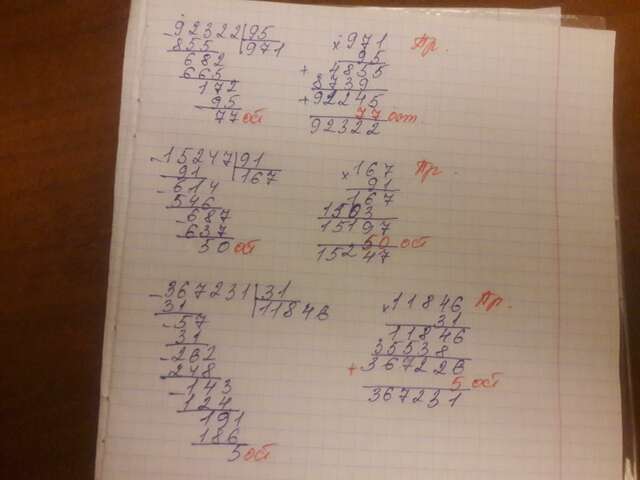 92322 95 971 Пр.
- 855 971 × 95
682 4855
665 + 8739
172 + 92245
95 77 ост.
77 ост 92322
- 15247 91 × 167 Пр.
91 167 91
- 614 167
546 1503
- 687 15197
- 637 50 ост
50 ост 15247
- 367231 31 × 11846 Пр.
31 11846 31
- 57 11846
31 35538
- 262 + 367226
248 5 ост
- 143 367231
124
191
186
5 ост